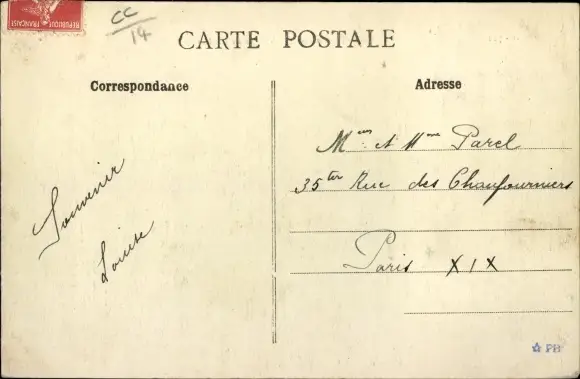 RÉPUBLIQUE FRANÇAISE
CC
14
CARTE POSTALE
Correspondance
Adresse
Souvenir
Louise
Mr et Mme Parel
35ter Rue des Chaufourniers
Paris XIX
PH